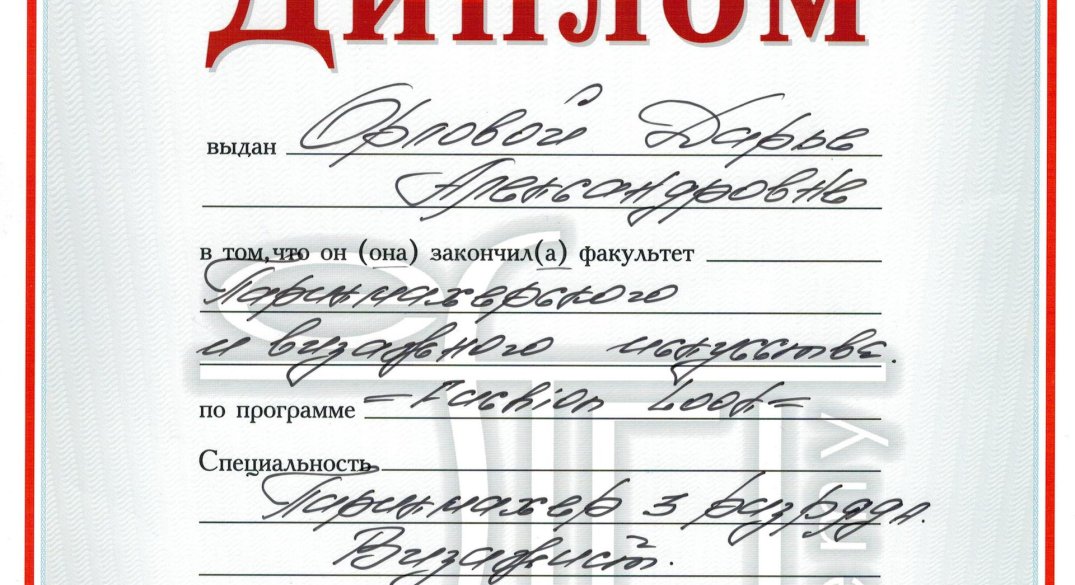 Диплом
выдан Орловой Дарье
Александровне
в том, что он (она) закончил(а) факультет
Парикмахерского
и визажного искусства.
по программе =Fashion Look=
Специальность
Парикмахер 3 разряда.
Визажист.